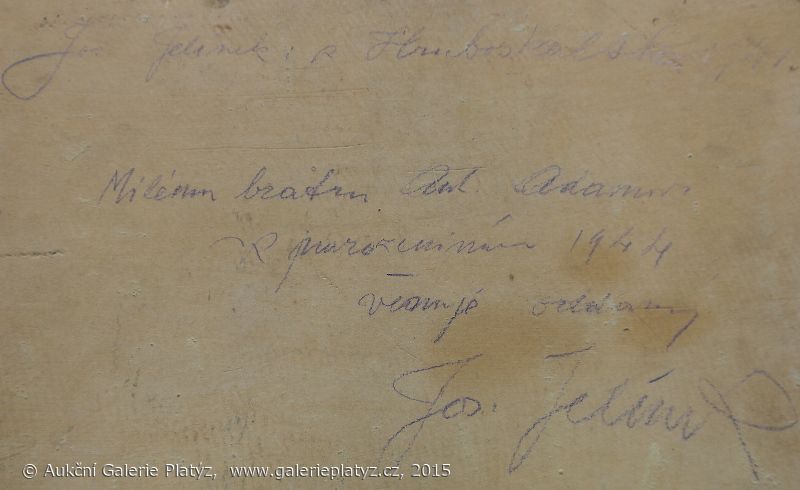 Jos Jelínek: z Hruboskalska
Milému bratru Ant. Adamovi
k narozeninám 1944
věnuje oddaný
Jos. Jelínek
© Aukční Galerie Platýz, www.galerieplatyz.cz, 2015